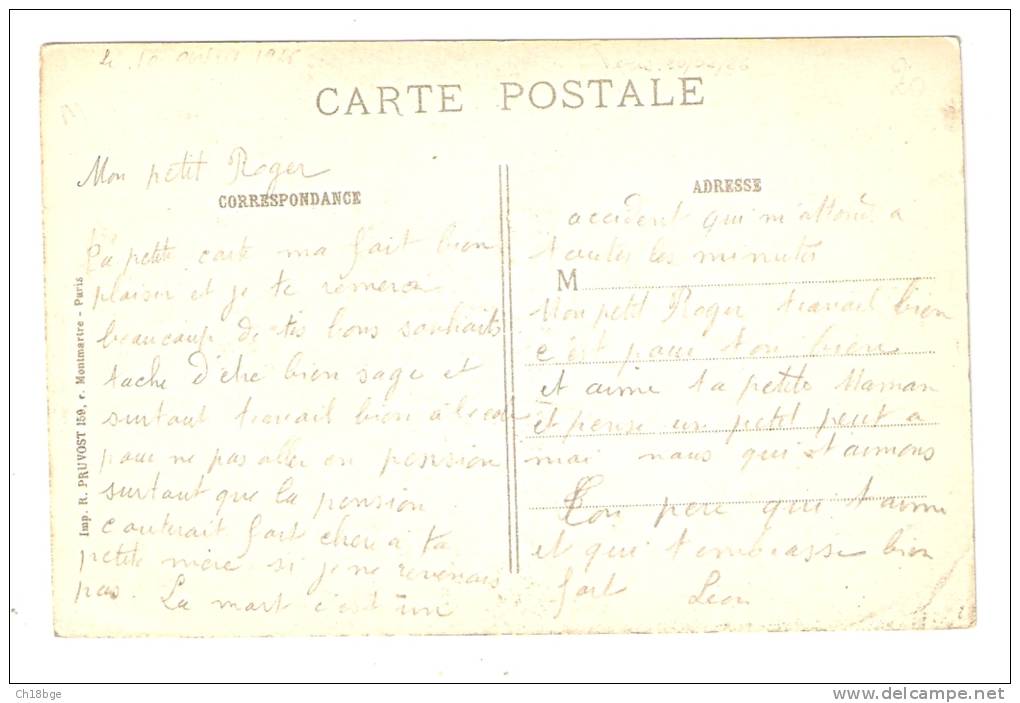 CARTE POSTALE
Mon petit Roger
CORRESPONDANCE
ta petite carte ma fait bien
plaisir et je te remerci
beaucoup de tes bons souhaits
tache d'être bien sage et
surtout travail bien à lecole
pour ne pas aller en pension
surtout que la pension
couterait fort chere à ta
petite mère si je ne revenais
pas. La mort c'est un
ADRESSE
accident qui m'attend a
toutes les minutes
M
Mon petit Roger travail bien
c'est pour ton bien
et aime ta petite Maman
et pense un petit peut a
moi nous qui t'aimons
Ton pere qui t'aime
et qui t'embrasse bien
fort Leon
Imp. R. PRUVOST 159, r. Montmartre - Paris
Ch18bge
delcampe.net